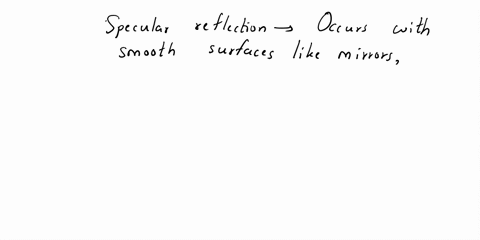 Specular reflection → Occurs with
smooth surfaces like mirrors,